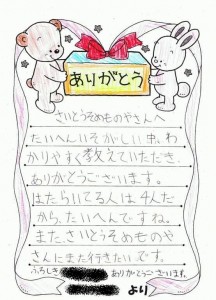 ありがとう
さいとうそめものやさんへ
たいへんいそがしい中、わ
かりやすく教えていただき、
ありがとうございます。
はたらいてる人は4人だ
から、たいへんですね。
また、さいとうそめものや
さんにまた行きたいです。
ふろしき ありがとうございます。
より